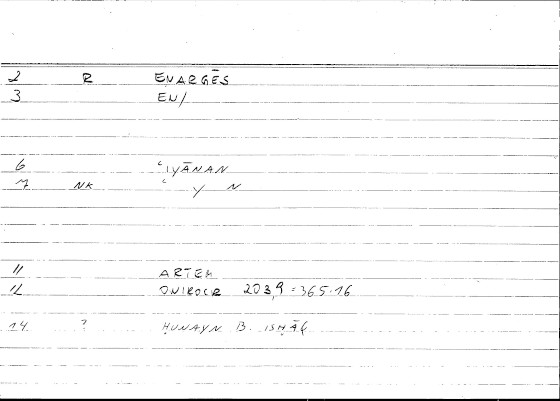 2 R ENARGĒS
3 EN/
6 ʿIYĀNAN
7 NK ʿ Y N
11 ARTEM
12 ONIROCR 203,9 = 365.16
14 ? ḤUNAYN B. ISḤĀQ